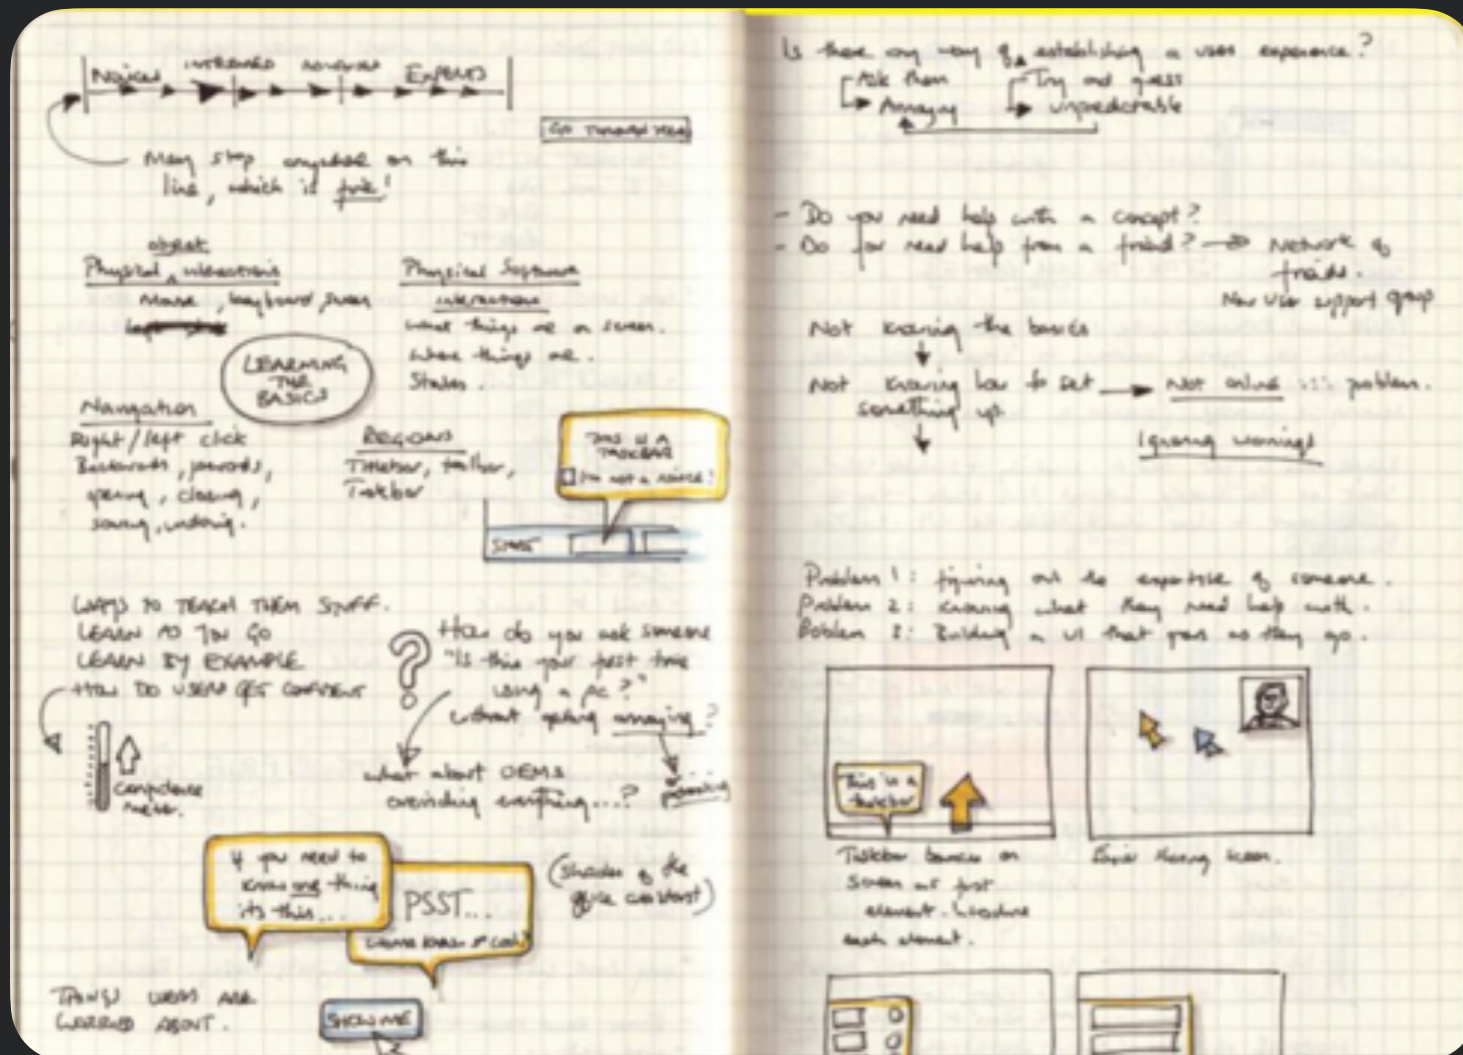 NOVICES INTERMED EXPERTS
May stop anywhere on this
line, which is fine!
object
Physical interactions
Mouse, keyboard, screen
Physical Software
interactions
what things are on screen.
where things are.
States.
LEARNING
THE
BASICS
Navigation
Right/left click
Backwards, forwards,
opening, closing,
saving, undoing.
REGIONS
Titlebar, toolbar,
Taskbar
THIS IS A
TASKBAR
I'm not a novice!
START
WAYS TO TEACH THEM STUFF.
LEARN AS YOU GO
LEARN BY EXAMPLE
HOW DO USERS GET CONFIDENT
Confidence
meter.
?
How do you ask someone
"Is this your first time
using a pc?"
without getting annoying?
what about OEMS
overriding everything...?
If you need to
know one thing
its this...
PSST...
wanna know s' cool?
(shades of the
office assistant)
THINGS USERS ARE
WORRIED ABOUT.
SHOW ME
Is there any way of establishing a users experience?
Ask them
Annoying
Try and guess
unpredictable
- Do you need help with a concept?
- Do you need help from a friend? Network of
friends.
New User support group
Not knowing the basics
Not knowing how to set
something up.
Not online problem.
Ignoring warnings
Problem 1: figuring out the expertise of someone.
Problem 2: knowing what they need help with.
Problem 3: Building a UI that goes as they go.
This is a
taskbar
Taskbar bounces on
screen as first
element.
each element.
sharing screen.